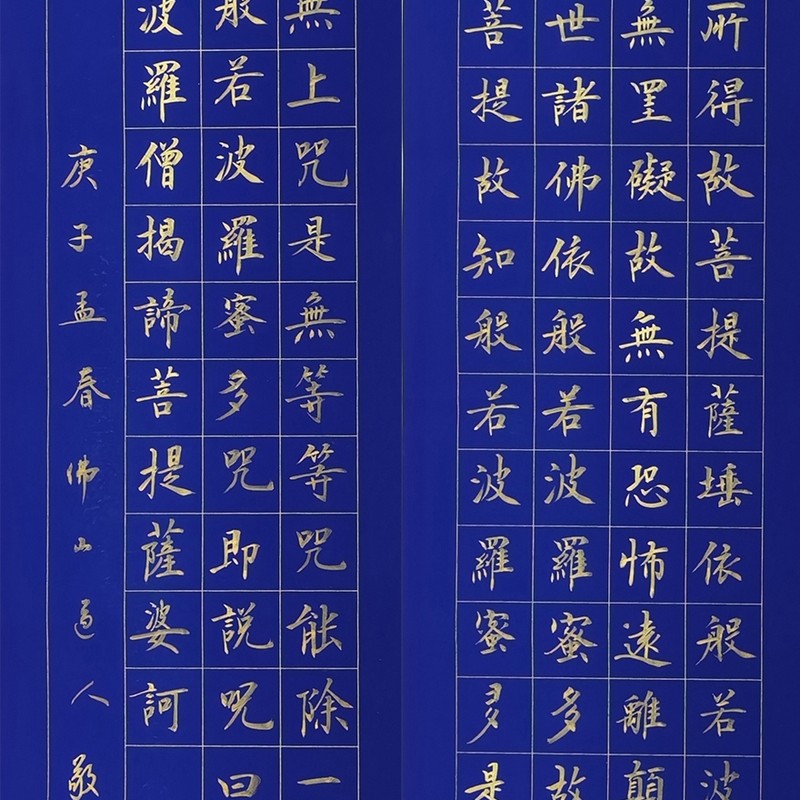 所得故菩提薩埵依般若波
無罣礙故無有恐怖遠離顛
世諸佛依般若波羅蜜多故
菩提故知般若波羅蜜多是
無上咒是無等等咒能除一
般若波羅蜜多咒即説呪曰
波羅僧揭諦菩提薩婆訶
庚子孟春佛山道人敬